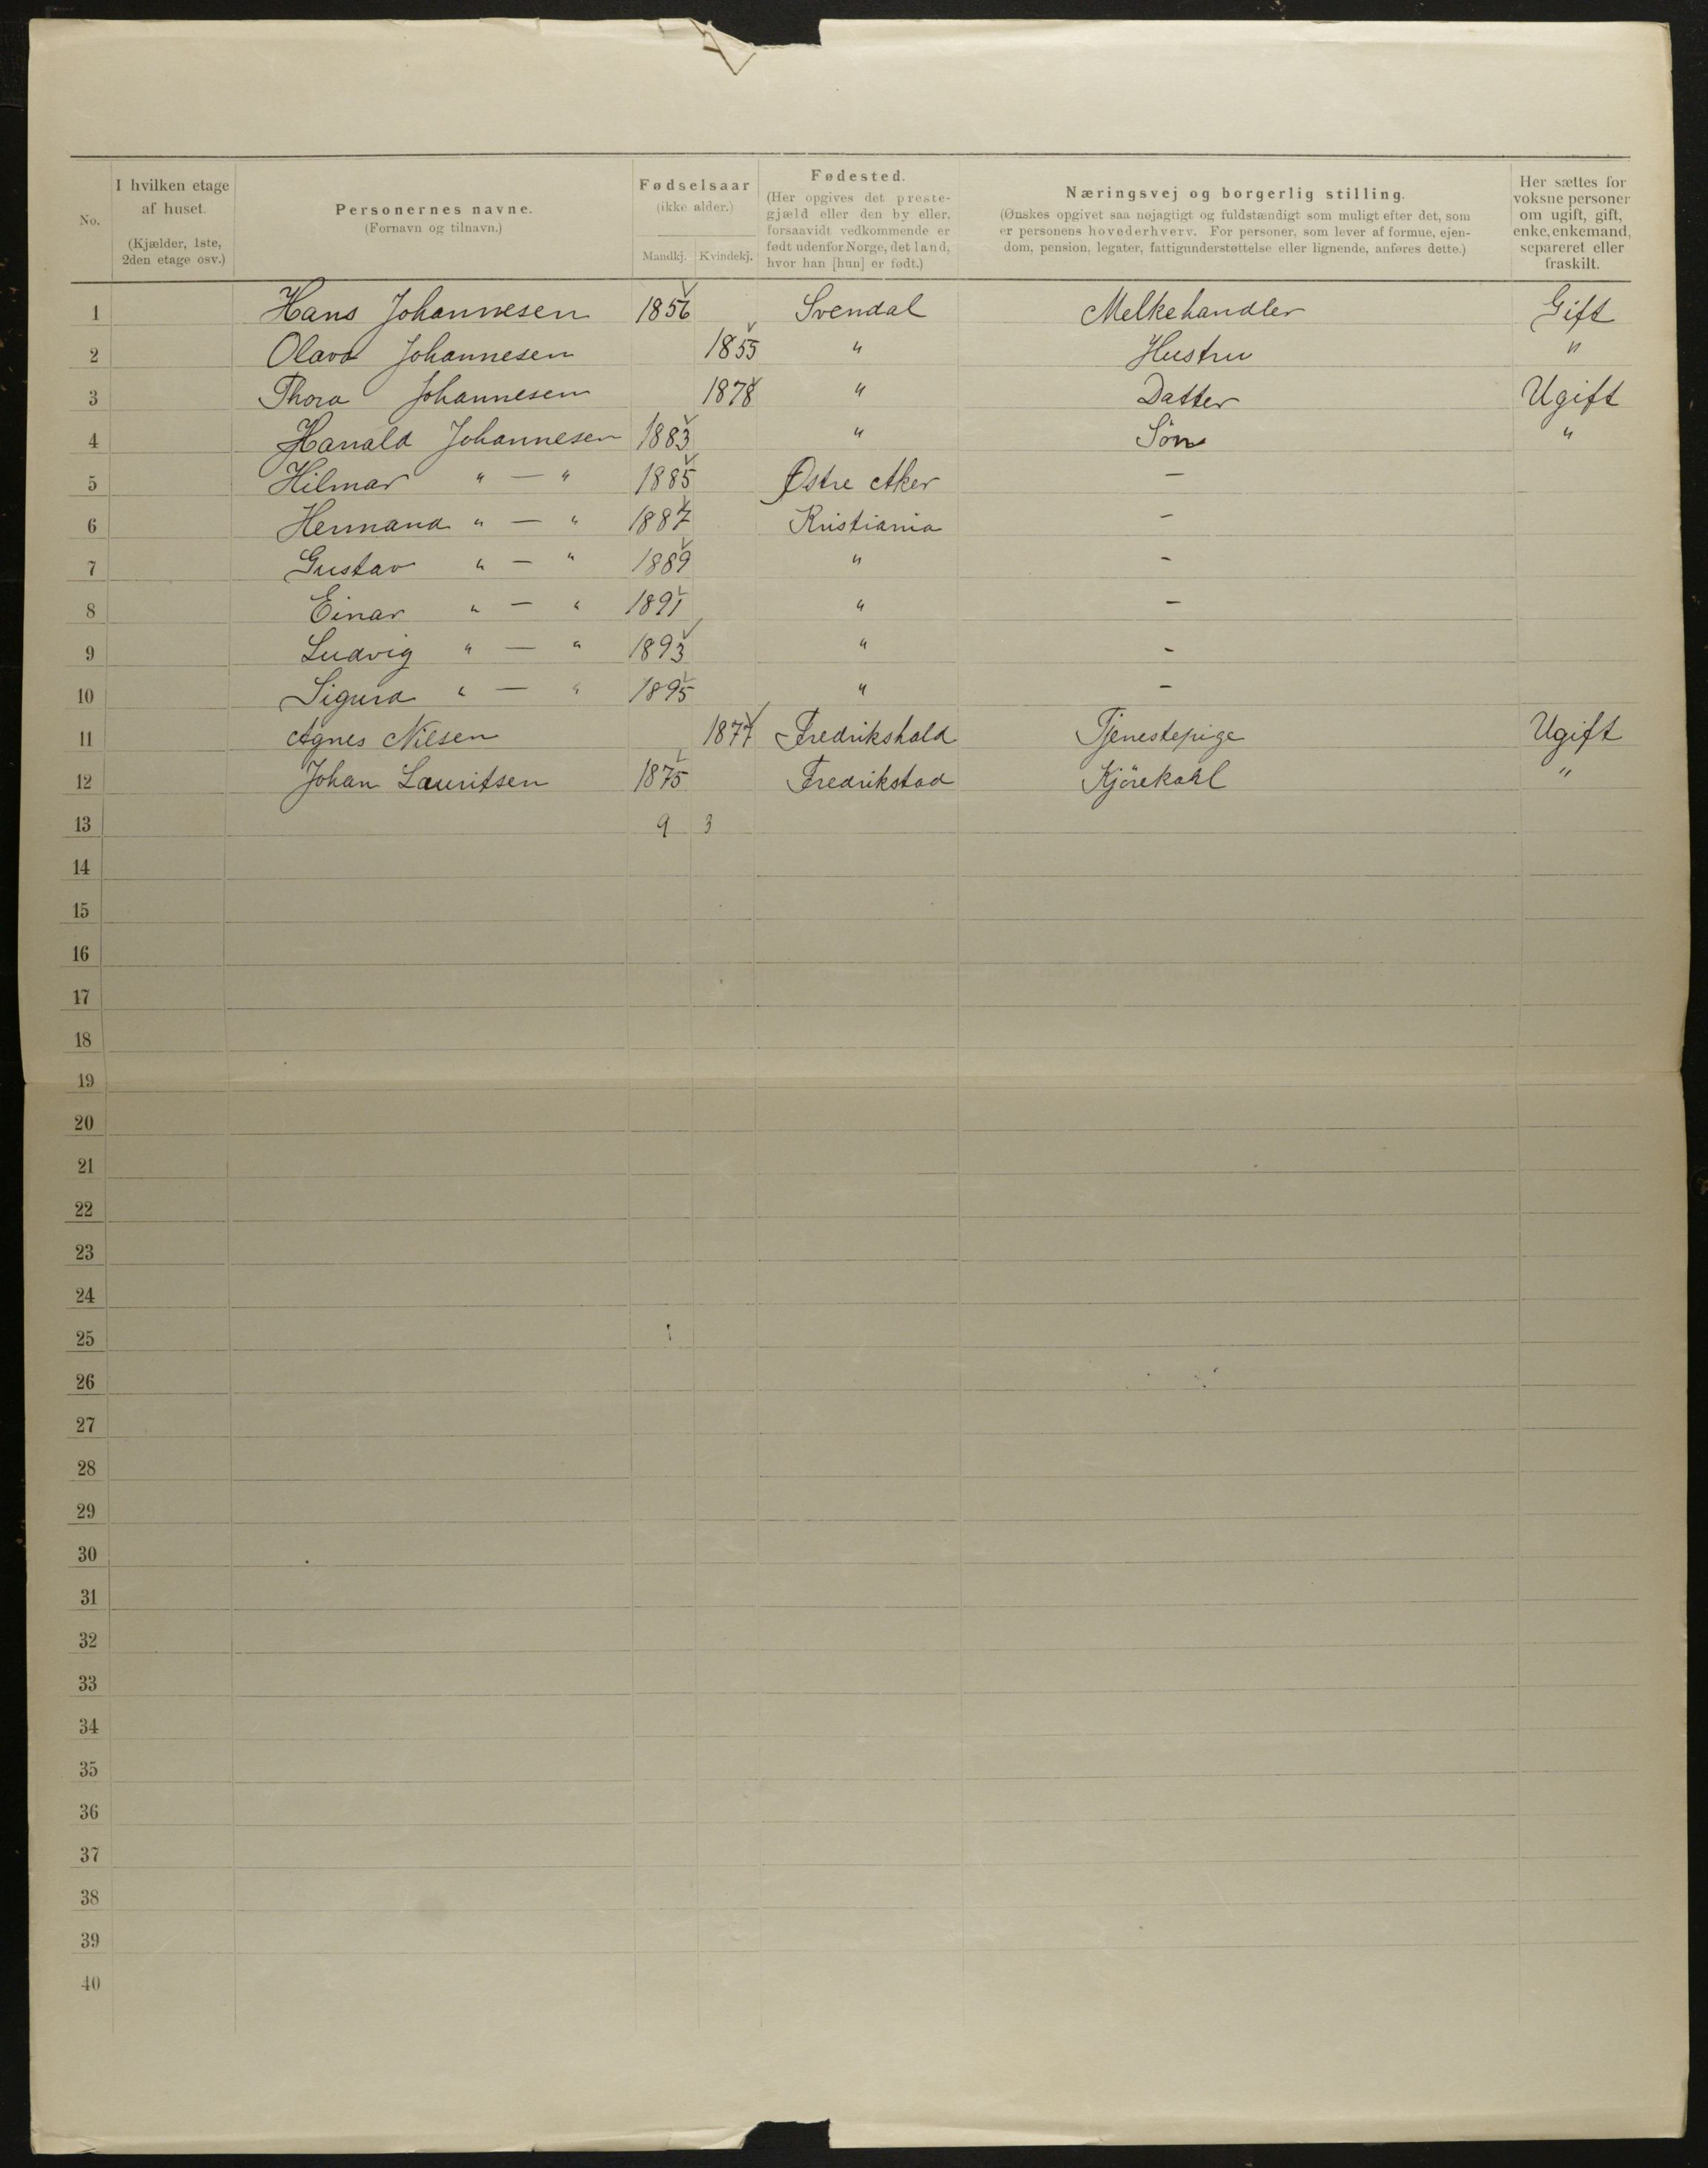 No. | I hvilken etage af huset. (Kjælder, 1ste, 2den etage osv.) | Personernes navne. (Fornavn og tilnavn.) | Fødselsaar (ikke alder.) Mandkj. Kvindekj. | Fødested. (Her opgives det prestegjæld eller den by eller, forsaavidt vedkommende er født udenfor Norge, det land, hvor han [hun] er født.) | Næringsvej og borgerlig stilling. (Ønskes opgivet saa nøjagtigt og fuldstændigt som muligt efter det, som er personens hovederhverv. For personer, som lever af formue, ejendom, pension, legater, fattigunderstøttelse eller lignende, anføres dette.) | Her sættes for voksne personer om ugift, gift, enke, enkemand, separeret eller fraskilt.
1 Hans Johannesen 1856 Svendal Melkehandler Gift
2 Olava Johannesen 1855 " Hustru "
3 Thora Johannesen 1878 " Datter Ugift
4 Harald Johannesen 1883 " Søn "
5 Hilmar " — " 1885 Østre Aker —
6 Hermand " — " 1887 Kristiania —
7 Gustav " — " 1889 " —
8 Einar " — " 1891 " —
9 Ludvig " — " 1893 " -
10 Sigurd " — " 1895 " —
11 Agnes Nilsen 1877 Fredrikshald Tjenestepige Ugift
12 Johan Lauritsen 1875 Fredrikstad Kjörekarl "
13 9 3
14
15
16
17
18
19
20
21
22
23
24
25
26
27
28
29
30
31
32
33
34
35
36
37
38
39
40